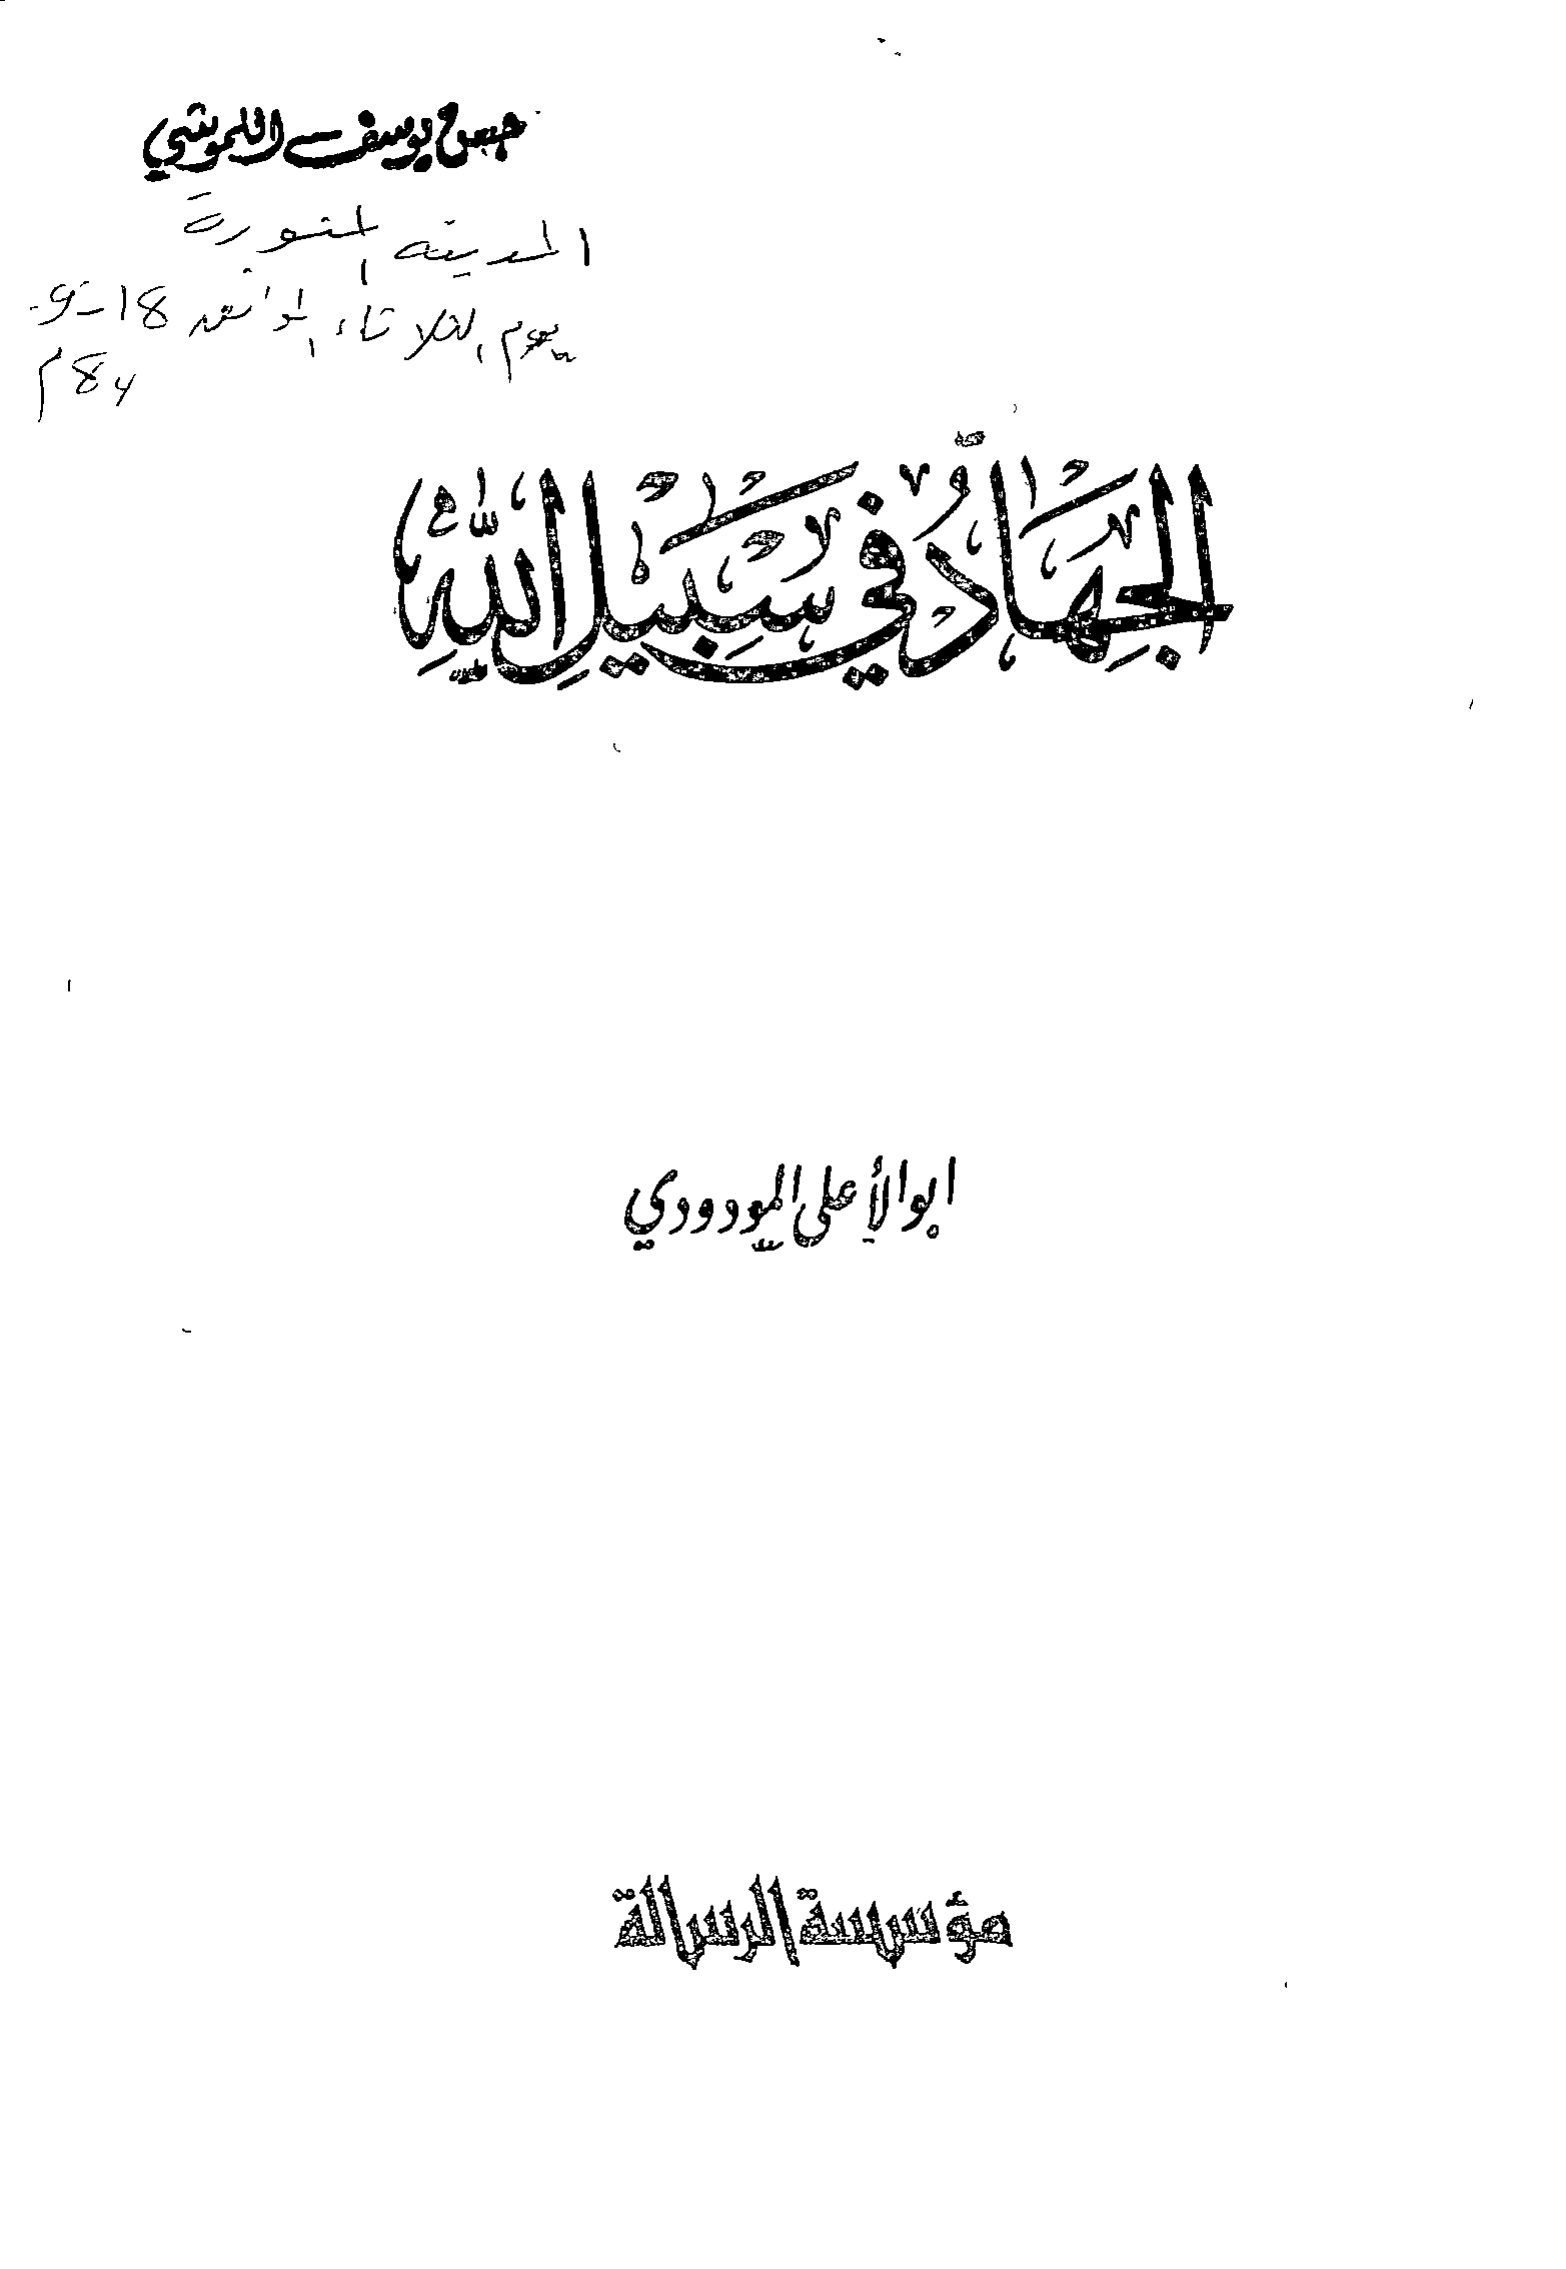 حسن يوسف اللموشي
المدينة المنورة
يوم الثلاثاء الموافق 18-9-
84م
الجِهَادُ فِي سَبِيلِ اللّٰهِ
ابو الأعلى المودودي
مؤسسة الرسالة